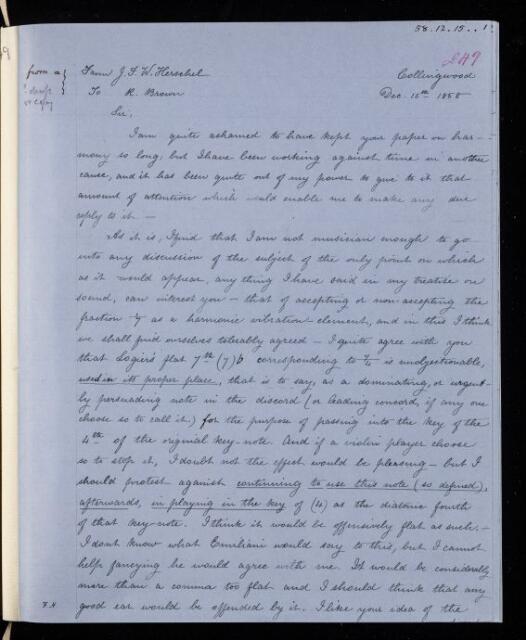 58.12.15..1
249
from a
? draft
or copy
From J. F. W. Herschel
Collingwood
To R. Brown
Dec. 15th 1858
Sir,
I am quite ashamed to have kept your paper on har-
mony so long, but I have been working against time in another
cause, and it has been quite out of my power to give to it that
amount of attention which would enable me to make any due
reply to it —
As it is, I find that I am not musician enough to go
into any discussion of the subject of the only point on which
as it would appear, any thing I have said in my treatise on
sound, can interest you — that of accepting or non-accepting the
fraction as a harmonic vibration element, and in this I think
we shall find ourselves tolerably agreed — I quite agree with you
that Logier's flat 7th (7)b corresponding to 7/4 is unobjectionable,
used in its proper place, that is to say, as a dominating, or urgent-
ly persuading note in the discord (or leading concord, if any one
choose so to call it.) for the purpose of passing into the key of the
4th of the original key-note. And if a violin player choose
so to stop it, I doubt not the effect would be pleasing — but I
should protest against continuing to use this note (so defined),
afterwards, in playing in the key of (4) as the diatonic fourth
of that key-note. I think it would be offensively flat as such. —
I dont know what Emiliani would say to this, but I cannot
help fancying he would agree with me. It would be considerably
more than a comma too flat and I should think that any
good ear would be offended by it. I like your idea of the